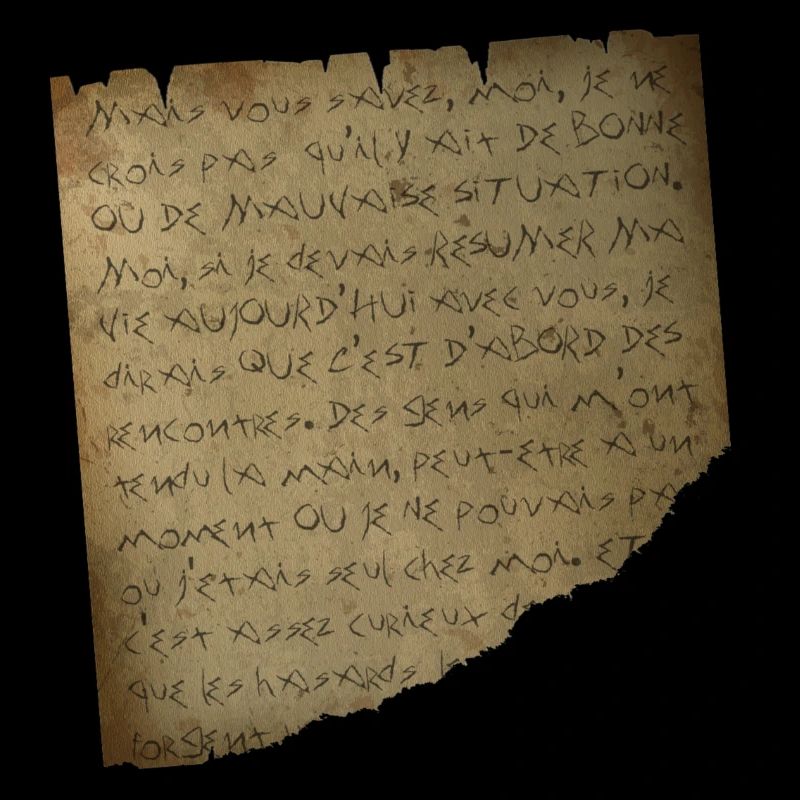 Mais vous savez, moi, je ne
crois pas qu'il y ait de bonne
ou de mauvaise situation.
Moi, si je devais resumer ma
vie aujourd'hui avec vous, je
dirais que c'est d'abord des
rencontres. Des gens qui m'ont
tendu la main, peut-etre a un
moment ou je ne pouvais pa
ou j'etais seul chez moi. Et
c'est assez curieux d
que les hasards
forgent